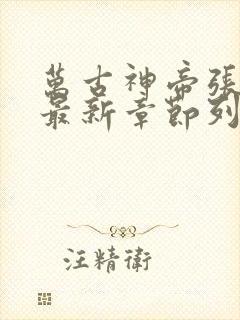 萬古神帝張
最新章節列
汪精衛